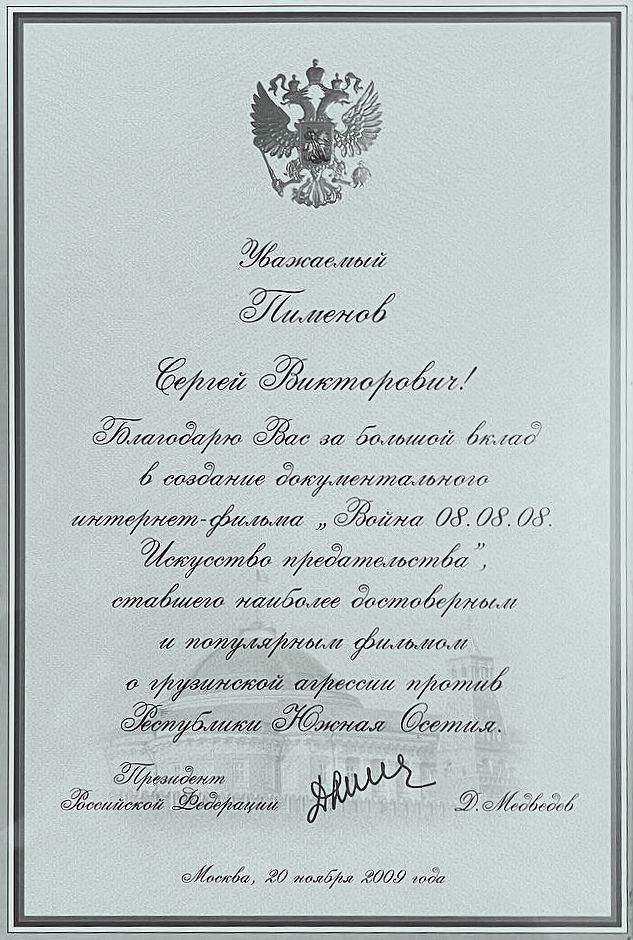 Уважаемый
Пименов
Сергей Викторович!
Благодарю Вас за большой вклад
в создание документального
интернет-фильма „Война 08.08.08.
Искусство предательства”,
ставшего наиболее достоверным
и популярным фильмом
о грузинской агрессии против
Республики Южная Осетия.
Президент
Российской Федерации
Д.Медведев
Москва, 20 ноября 2009 года